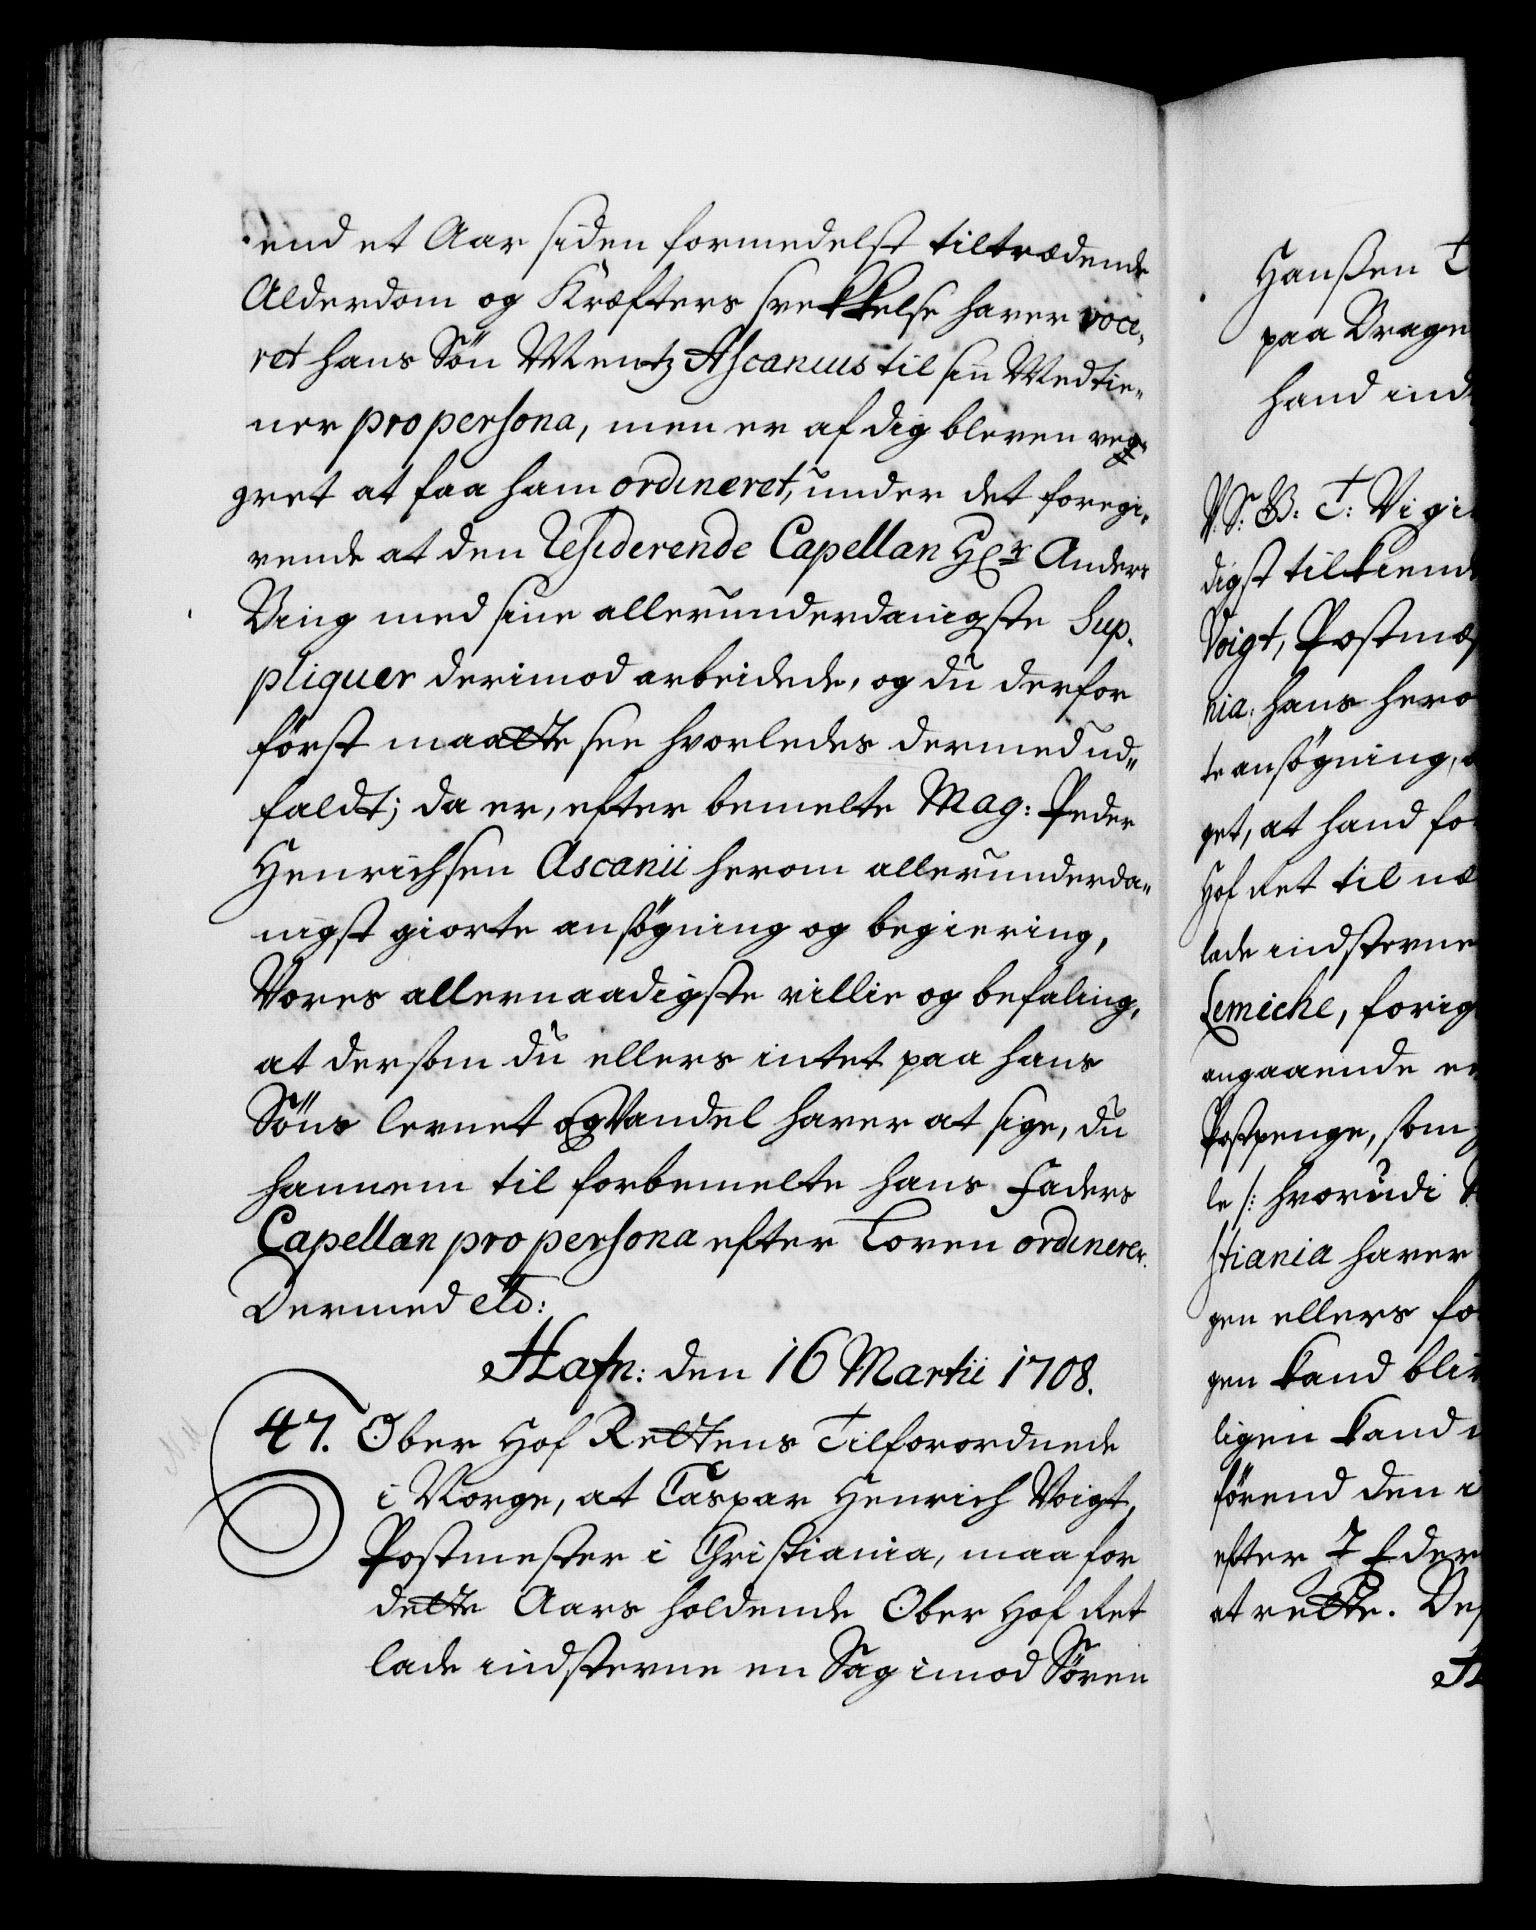 end et Aar siden formedelst tiltrædende
Alderdom og Kræfters svekkelse haver voce„
ret hans Sön Mentz Ascanius til sin Medtie„
ner pro persona, men er af dig bleven veg„
gret at faa ham ordineret, under det foregi„
vende at den Residerende Capellan Hr Anders
Ving med sine allerunderdanigste Sup„
pliquer derimod arbeidede, og du derfor
först maatte see hvorledes dermed ud„
faldt; da er, efter bemelte Mag: Peder
Henrichsen Ascanii herom allerunderda„
nigst giorte ansögning og begiering,
Vores allernaadigste villie og befaling,
at dersom du ellers intet paa hans
Söns levnet og Vandel haver at sige, du
hannem til forbemelte hans Faders
Capellan pro persona efter Loven ordinerer.
Dermed etc:
Hafn: den 16 Martii 1708.
47. Ober Hof Rettens Tilforordnede
i Norge, at Caspar Henrich Voigt,
Postmester i Christiania, maa for
dette Aars holdende Ober Hof Ret
lade indstevne en Sag imod Sören
Hanssen
paa Drage
hand ind
V. S. G. T: Vi gi
digst tilkiend
Voigt, Postmes
nia, hans hero
te ansögning,
get, at hand fo
Hof Ret til næ
lade indstevne
Lemiche, forig
angaaende
Postpenge, som
le /: hvorudi
stiania haver
gen ellers fo
gen kand bliv
ligen kand
förend den
efter 7 Eder
at rette.